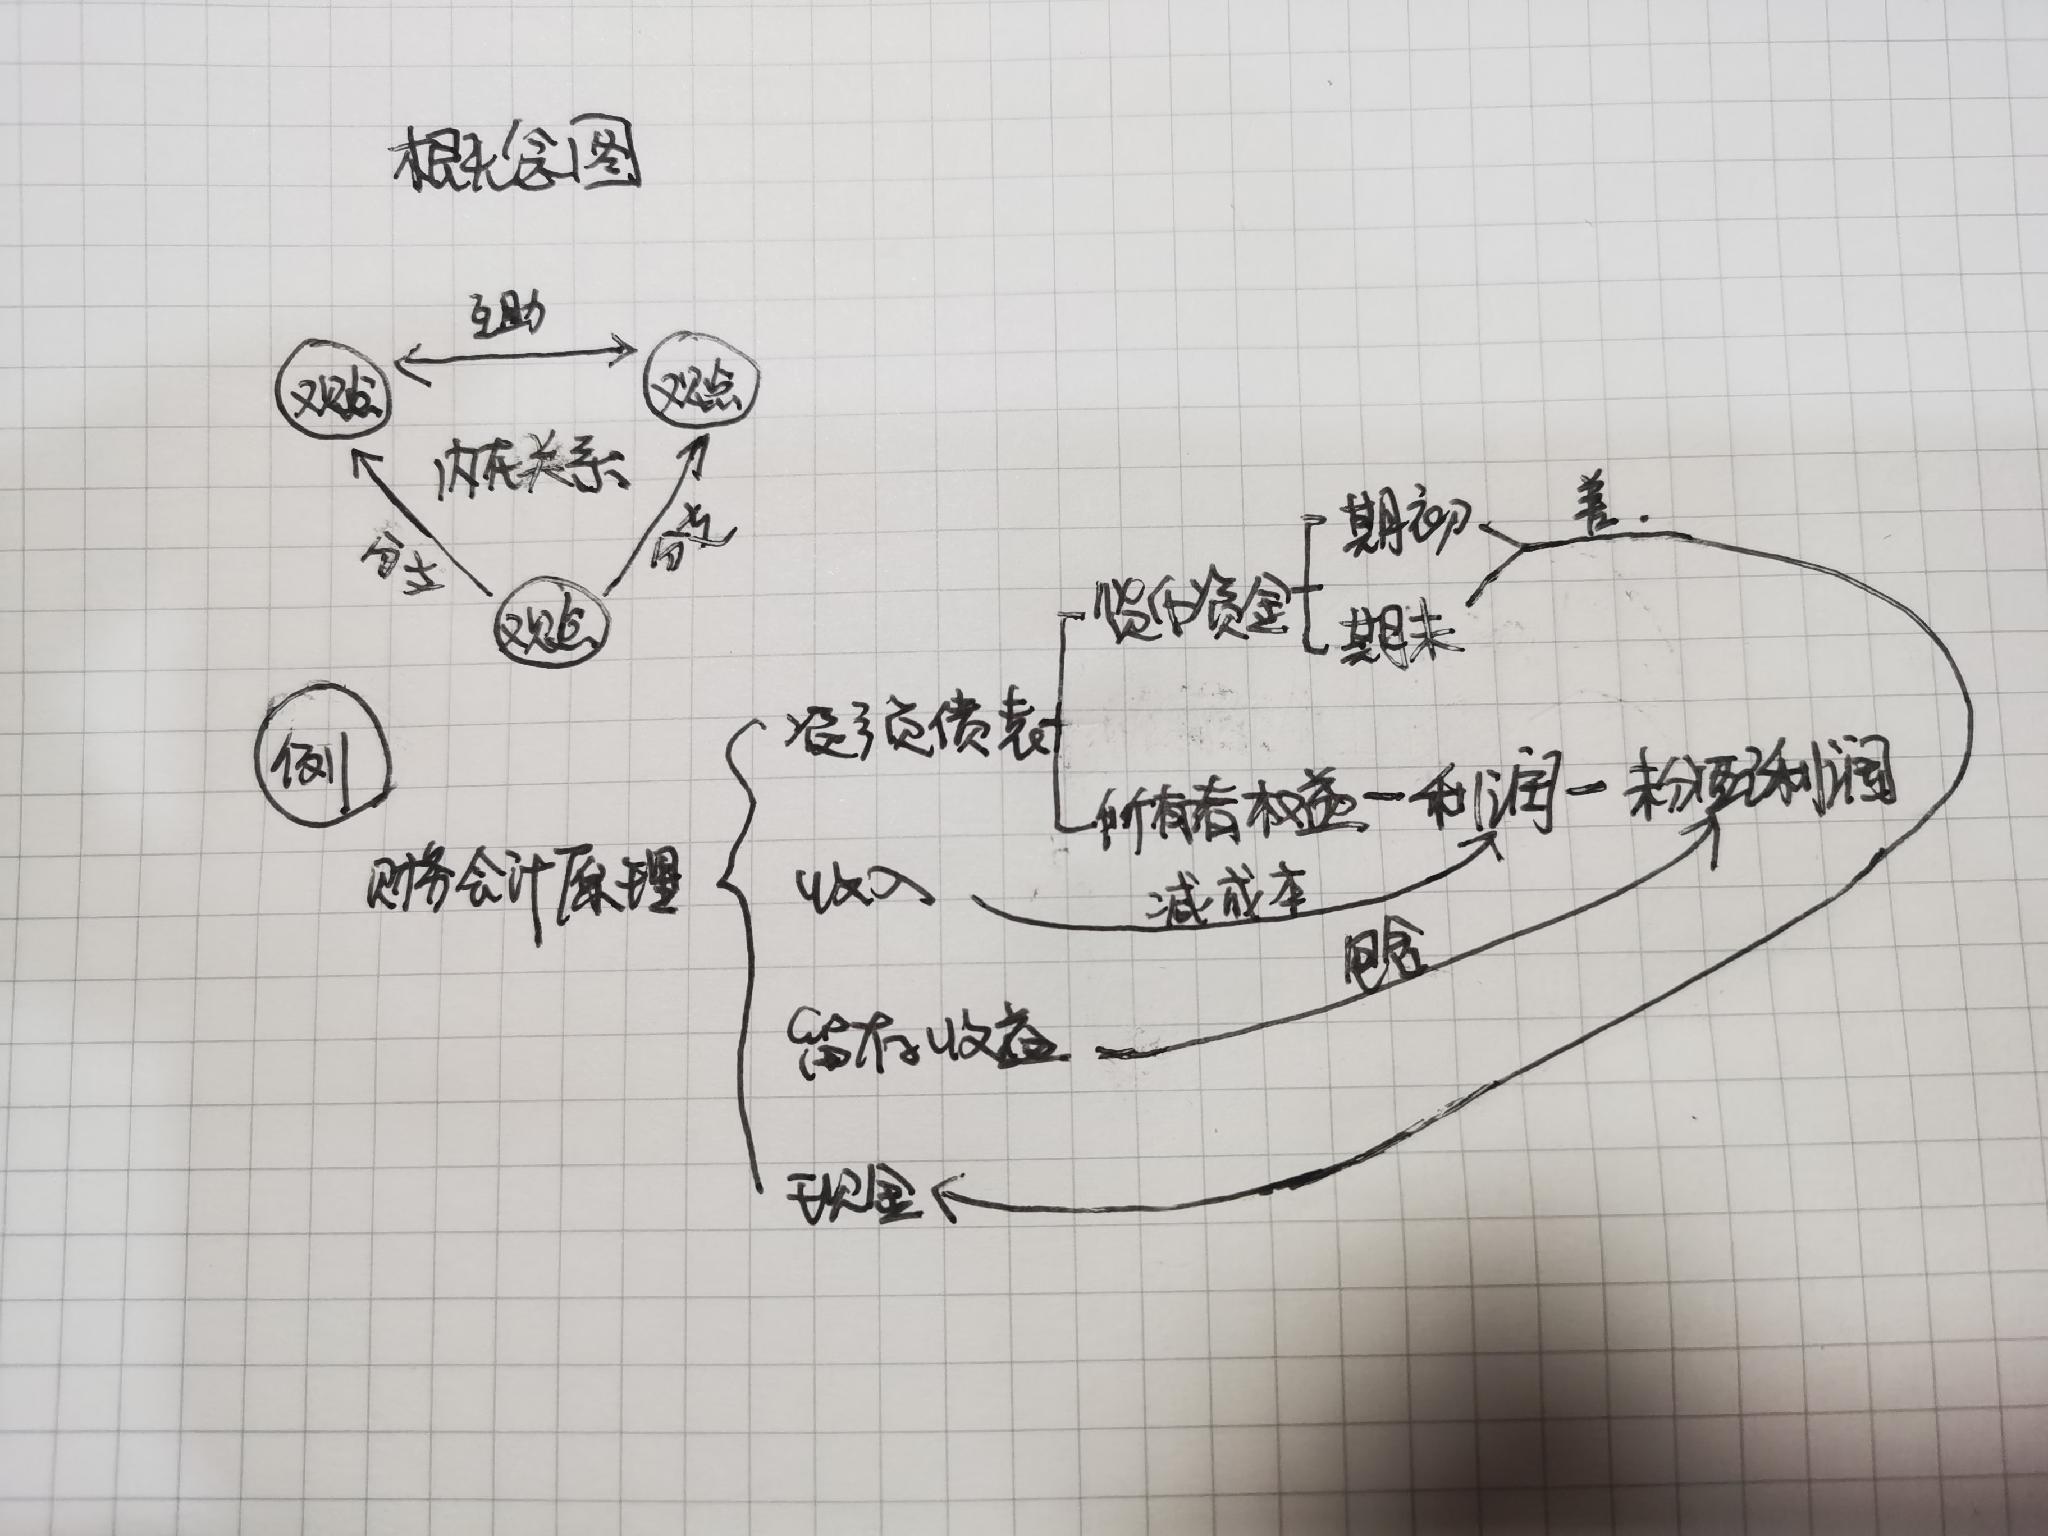 概念图
互助
观点
观点
内在关系
分支
分支
观点
例
期初
差.
货币资金
期末
资产负债表
所有者权益-利润-未分配利润
财务会计原理
收入
减成本
包含
留存收益
现金